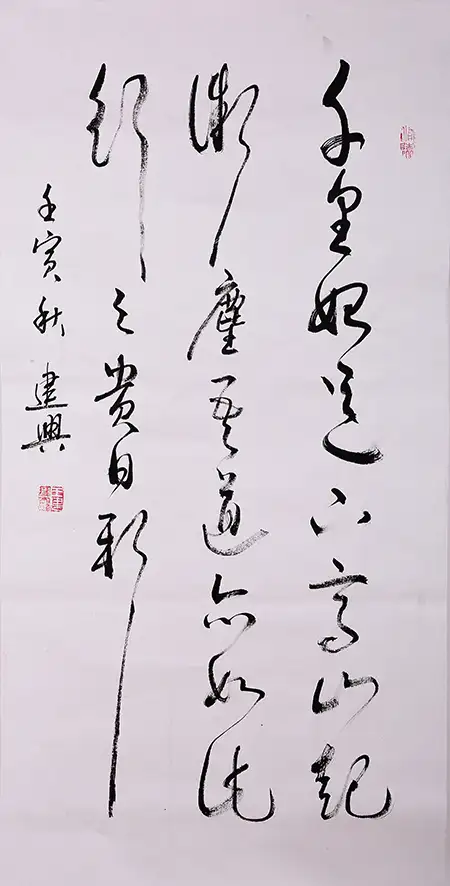 千里始足下高山起
微塵吾道亦如此
行之貴日新
壬寅秋建興